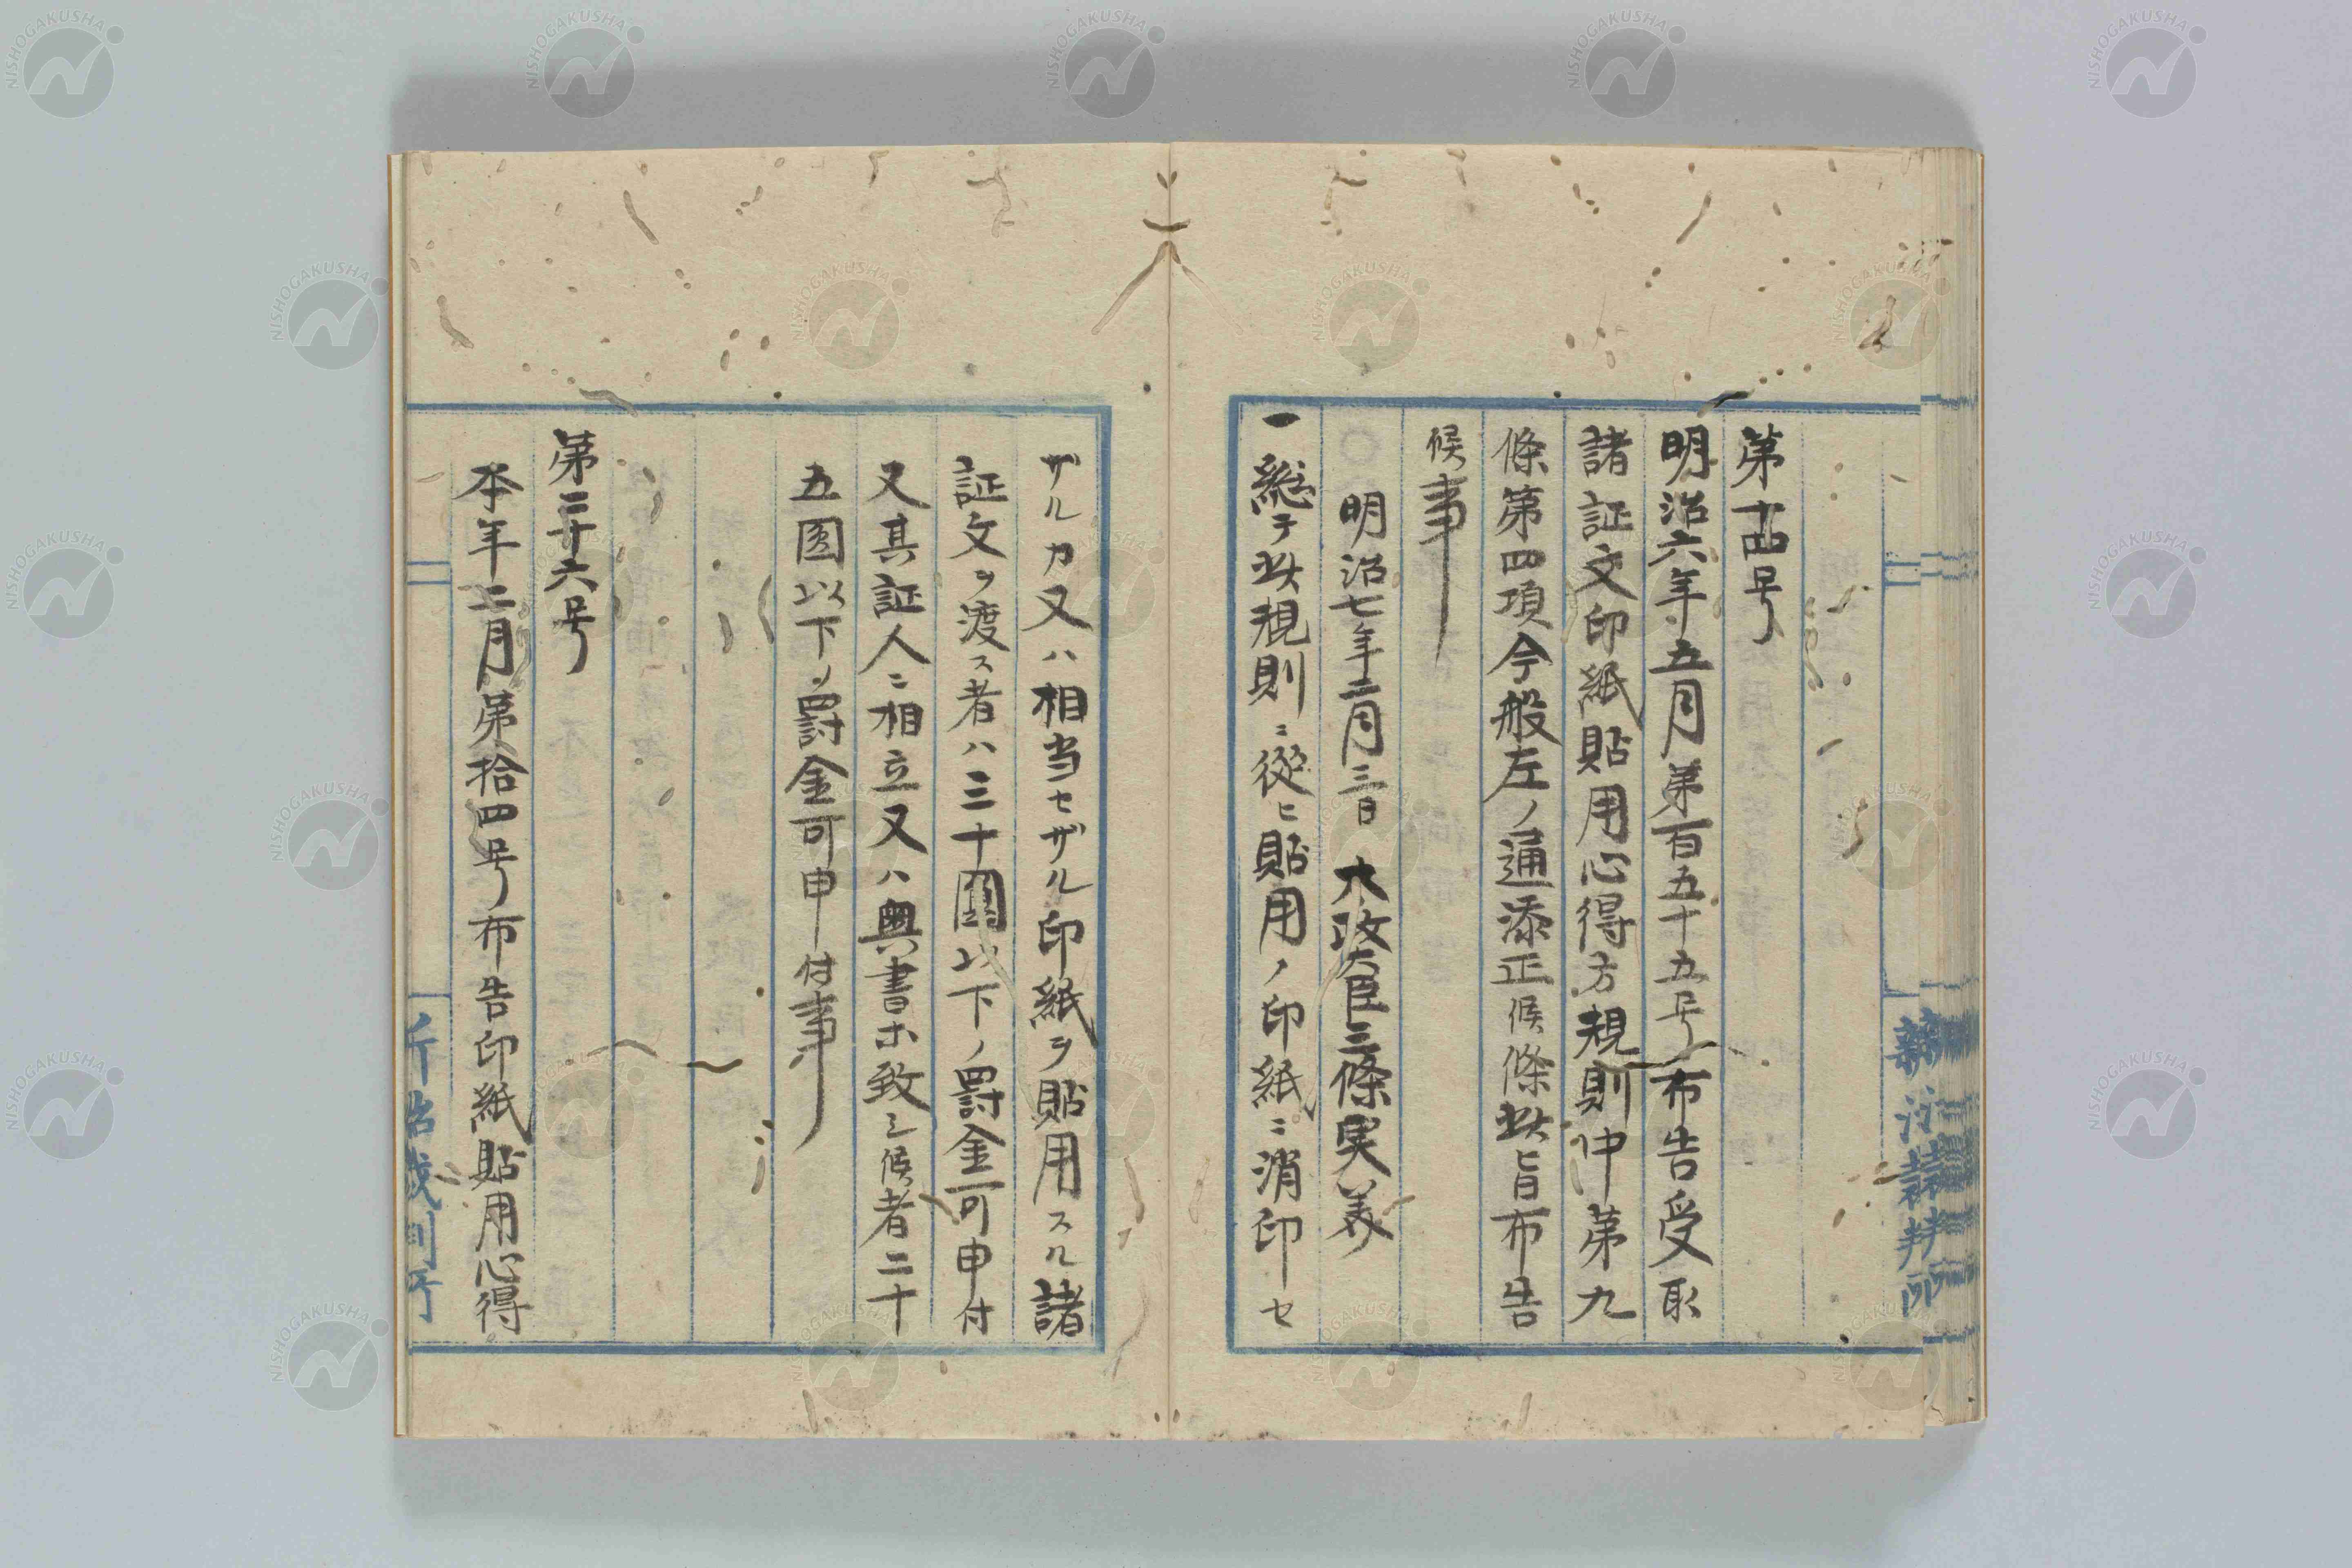 第十四号
明治六年五月第百五十五号布告受取
諸証文印紙貼用心得方規則中第九
條第四項今般左ノ通添正候條此旨布告
候事
明治七年二月三日 太政大臣三條実美
一総テ此規則ニ從ヒ貼用ノ印紙ニ消印セ
ザルカ又ハ相当セザル印紙ヲ貼用スル諸
証文ヲ渡ス者ハ三十圓以下ノ罰金可申付
又其証人ニ相立又ハ奥書ホ致シ候者二十
五圓以下ノ罰金可申付事
第三十六号
本年二月第拾四号布告印紙貼用心得
NISHOGAKUSHA